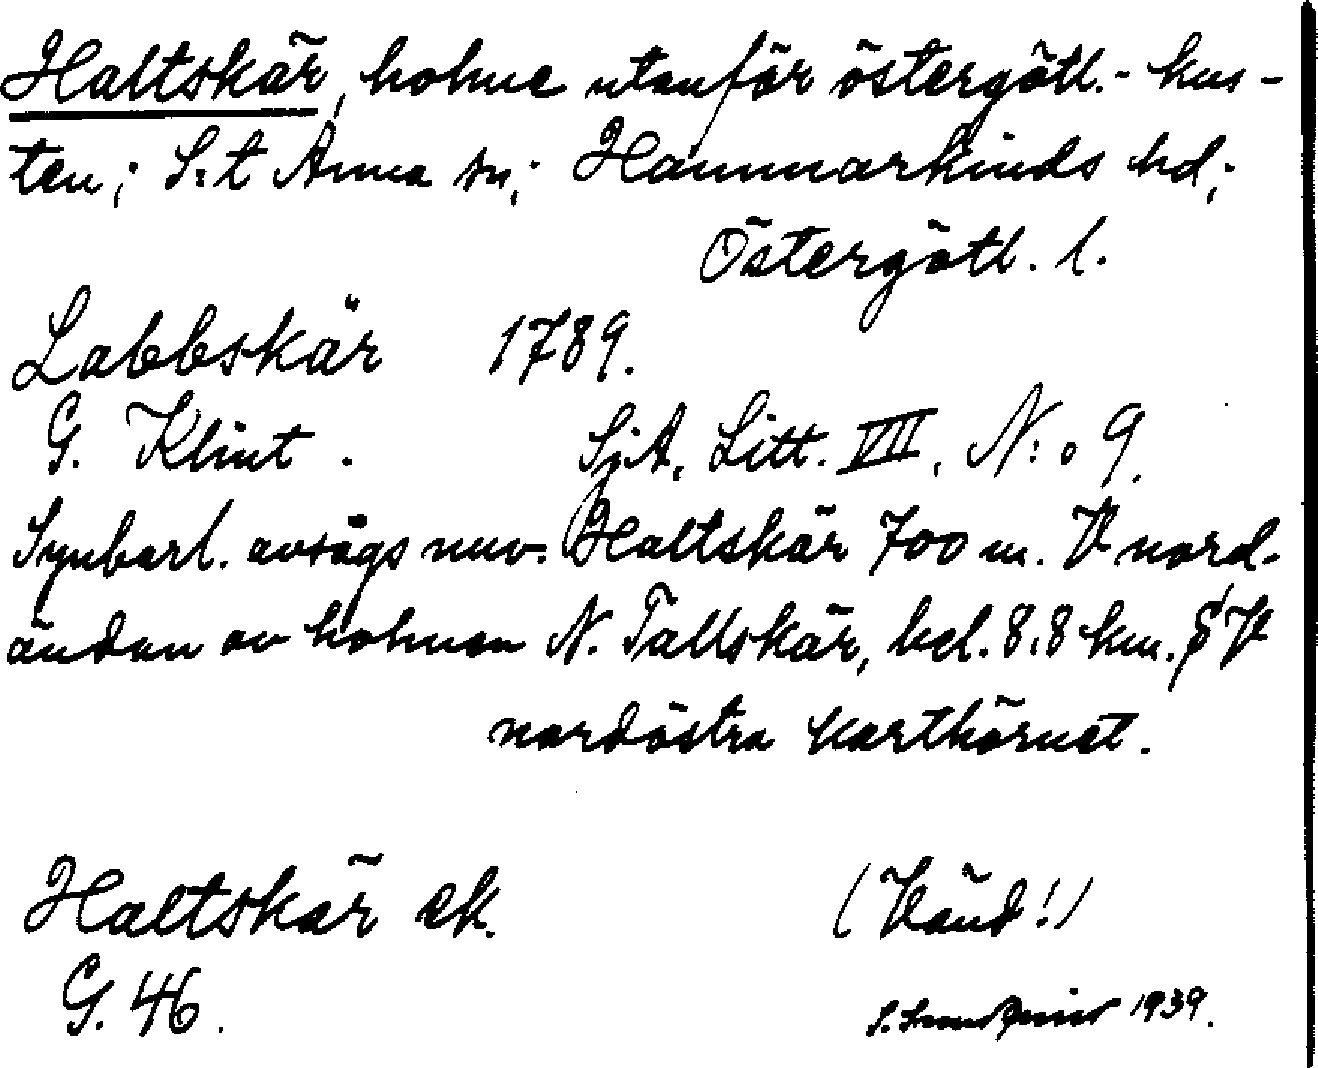 Haltskär, holme utanför östergötl.- kus-
ten; S:t Anna sn; Hammarkinds hd;
Östergötl. l.
Labbskär 1789.
G. Klint. SjA, Litt. VII, N:o 9.
Synbarl. avsågs nuv. Haltskär 700 m. V nord-
ändan av holmen N. Tallskär, bel. 8,8 km. S V
nordöstra karthörnet.
Haltskär ek. (Vänd!)
G. 46. 1939.